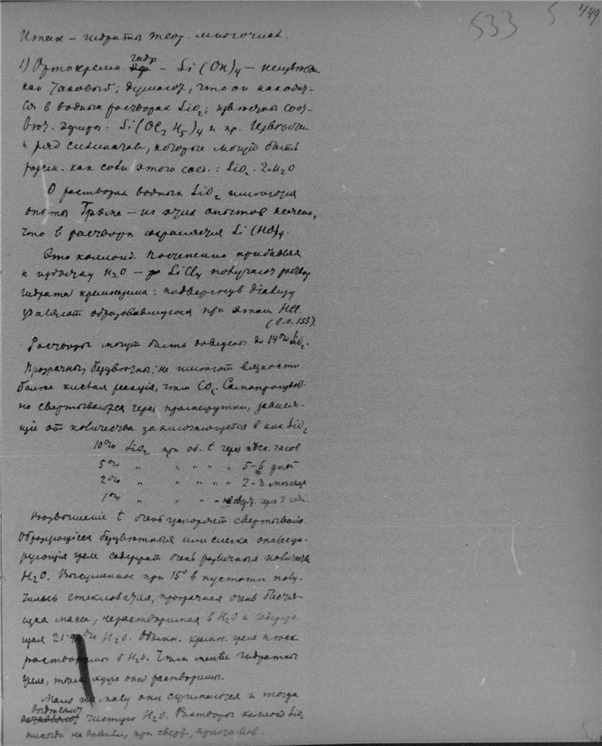 533 5 449
Итак – гидраты теор. многочисл.
1) Ортокремн. гидр – Si(OH)4 – неизвестен
как таковой; думают, что он находит-
ся в водных растворах SiO2; известны соот-
вет. эфиры: Si(OC2H5)4 и пр. Известен
и ряд силикатов, которые могут быть
рассм. как соли этого соед.: SiO2·2H2O
О растворах водных SiO2 имеются
опыты Грэма – из этих опытов
что в растворах Si(HO)4.
Это коллоид. Постепенно прибавляя
к избытку H2O – SiCl4 получают раствор
гидрата кремнезема: подвергнув диализу
удаляют образовавшуюся при этом HCl.
(l.c. 153)
Растворы могут быть доведены до 14% SiO2.
Прозрачны, бесцветны; не имеют вязкости
более кислая реакция, чем CO2. Самопроизволь-
но свертываются через промежутки, завися-
щие от количества заключающегося в них SiO2
10% SiO2 при об. t через неск. часов
5% " " " " 5-6 дней
2% " " " " 2-3 месяца
1% " " " "
Возвышение t очень ускоряет свертывание.
Образующиеся бесцветные или слегка опалесци-
рующие геле содержат очень различные количества
H2O. Высушенное при 15° в пустоте полу-
чилась стекловатая, прозрачная очень блестя-
щая масса, нерастворимая в H2O и содержа-
щая H2O. Обыкн. кремн. геле
растворимы в H2O. Чем менее гидратны
геле, тем хуже они растворимы.
Мало по малу они сжимаются и тогда
выделяют чистую H2O. Растворы коллоид SiO2